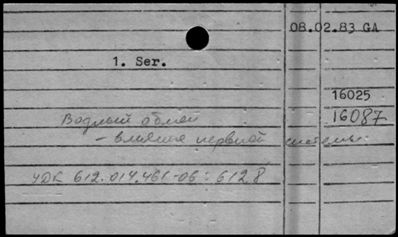 08.02.83 GA
1. Ser.
16025
16087
Водный обмен
- влияние нервной системы
УДК 612.014.461-06:612.8